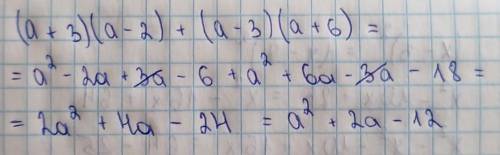 (a + 3)(a - 2) + (a - 3)(a + 6) =
= a² - 2a + 3a - 6 + a² + 6a - 3a - 18 =
= 2a² + 4a - 24 = a² + 2a - 12